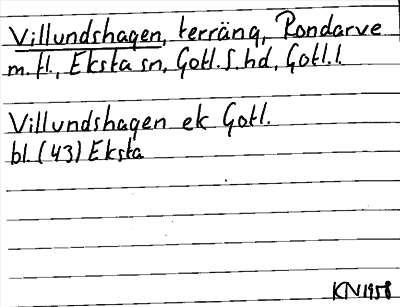 Villundshagen, terräng, Rondarve
m.fl., Eksta sn, Gotl. S. hd, Gotl. l.
Villundshagen ek Gotl.
bl. (43) Eksta
KN 1958